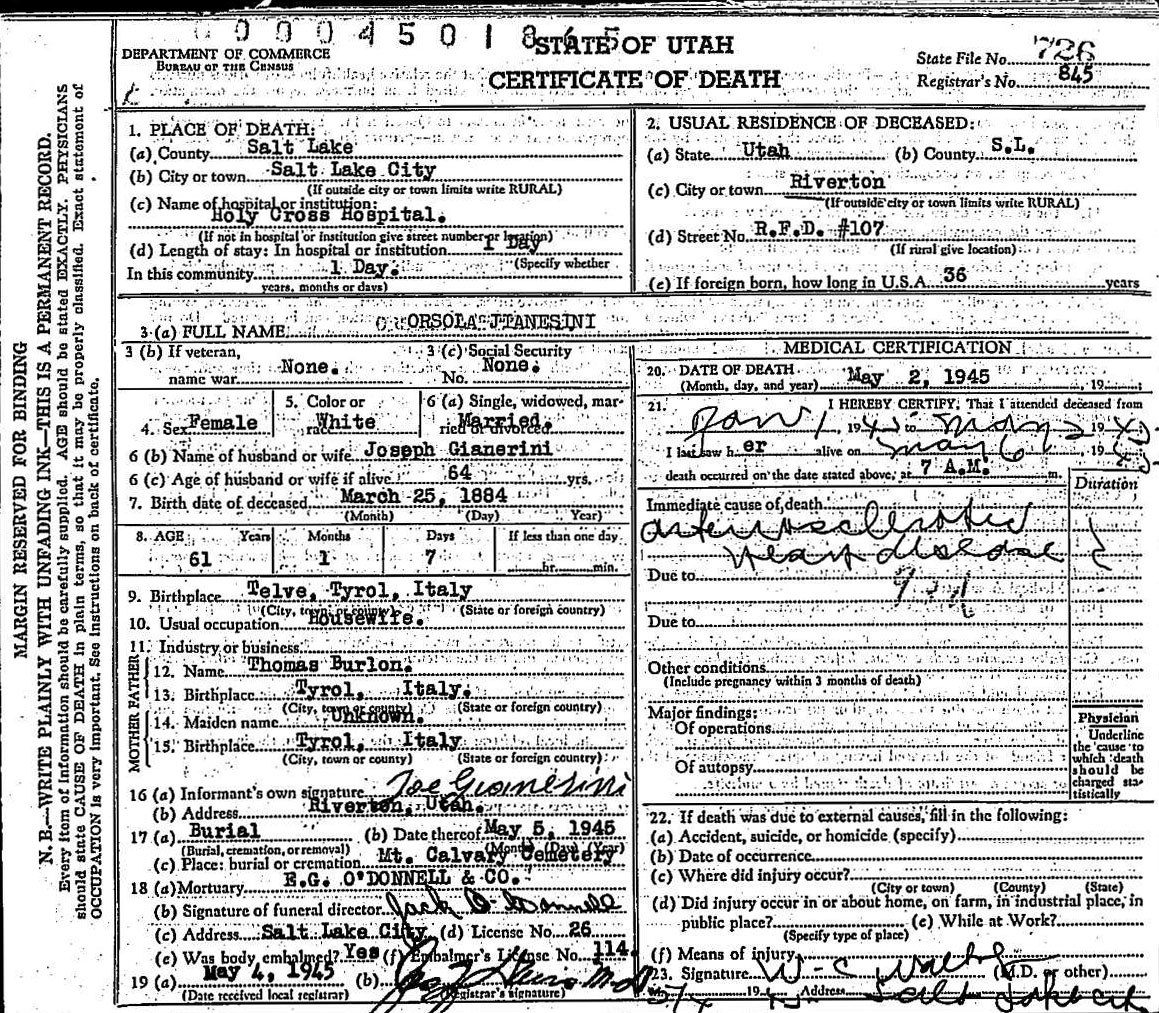 0 0 0 4 5 0 1 8
STATE OF UTAH
DEPARTMENT OF COMMERCE
BUREAU OF THE CENSUS
CERTIFICATE OF DEATH
State File No. 726
Registrar's No. 845
MARGIN RESERVED FOR BINDING
N. B.—WRITE PLAINLY WITH UNFADING INK—THIS IS A PERMANENT RECORD.
Every item of information should be carefully supplied. AGE should be stated EXACTLY. PHYSICIANS
should state CAUSE OF DEATH in plain terms, so that it may be properly classified. Exact statement of
OCCUPATION is very important. See instructions on back of certificate.
1. PLACE OF DEATH:
(a) County Salt Lake
(b) City or town Salt Lake City
(If outside city or town limits write RURAL)
(c) Name of hospital or institution:
Holy Cross Hospital.
(If not in hospital or institution give street number or location)
(d) Length of stay: In hospital or institution 1 Day
(Specify whether
In this community 1 Day.
years, months or days)
2. USUAL RESIDENCE OF DECEASED:
(a) State Utah (b) County S.L.
(c) City or town Riverton
(If outside city or town limits write RURAL)
(d) Street No. R.F.D. #107
(If rural give location)
(e) If foreign born, how long in U.S.A. 36 years
3 (a) FULL NAME ORSOLA JIANESINI
3 (b) If veteran, name war None.
3 (c) Social Security No. None.
4. Sex Female
5. Color or race White
6 (a) Single, widowed, married or divorced Married.
6 (b) Name of husband or wife Joseph Gianerini
6 (c) Age of husband or wife if alive 64 yrs.
7. Birth date of deceased March 25, 1884
(Month) (Day) (Year)
8. AGE Years Months Days If less than one day
61 1 7 hr. min.
9. Birthplace Telve, Tyrol, Italy
(City, town or county) (State or foreign country)
10. Usual occupation Housewife.
11. Industry or business
FATHER
12. Name Thomas Burlon.
13. Birthplace Tyrol, Italy.
(City, town or county) (State or foreign country)
MOTHER
14. Maiden name Unknown.
15. Birthplace Tyrol, Italy
(City, town or county) (State or foreign country)
16 (a) Informant's own signature Joe Gianesini
(b) Address Riverton, Utah.
17 (a) Burial (b) Date thereof May 5, 1945
(Burial, cremation, or removal) (Month) (Day) (Year)
(c) Place: burial or cremation Mt. Calvary Cemetery
18 (a) Mortuary E.G. O'DONNELL & CO.
(b) Signature of funeral director Jack O'Donnell
(c) Address Salt Lake City (d) License No. 26
(e) Was body embalmed? Yes (f) Embalmer's License No. 114
19 (a) May 4, 1945 (b) M.D.
(Date received local registrar) (Registrar's signature)
MEDICAL CERTIFICATION
20. DATE OF DEATH May 2, 1945, 19
(Month, day, and year)
21. I HEREBY CERTIFY, That I attended deceased from
Jan 1, 1945 to May 2 1945
I last saw her alive on May 1945
death occurred on the date stated above, at 7 A.M. m.
Duration
Immediate cause of death
arteriosclerotic
Heart disease
Due to
Due to
Other conditions
(Include pregnancy within 3 months of death)
Major findings:
Of operations
Of autopsy
Physician
Underline
the cause to
which death
should be
charged sta-
tistically
22. If death was due to external causes, fill in the following:
(a) Accident, suicide, or homicide (specify)
(b) Date of occurrence
(c) Where did injury occur?
(City or town) (County) (State)
(d) Did injury occur in or about home, on farm, in industrial place, in
public place? (e) While at Work?
(Specify type of place)
(f) Means of injury
23. Signature W-C Walker (M.D. or other)
19 Address Salt Lake City